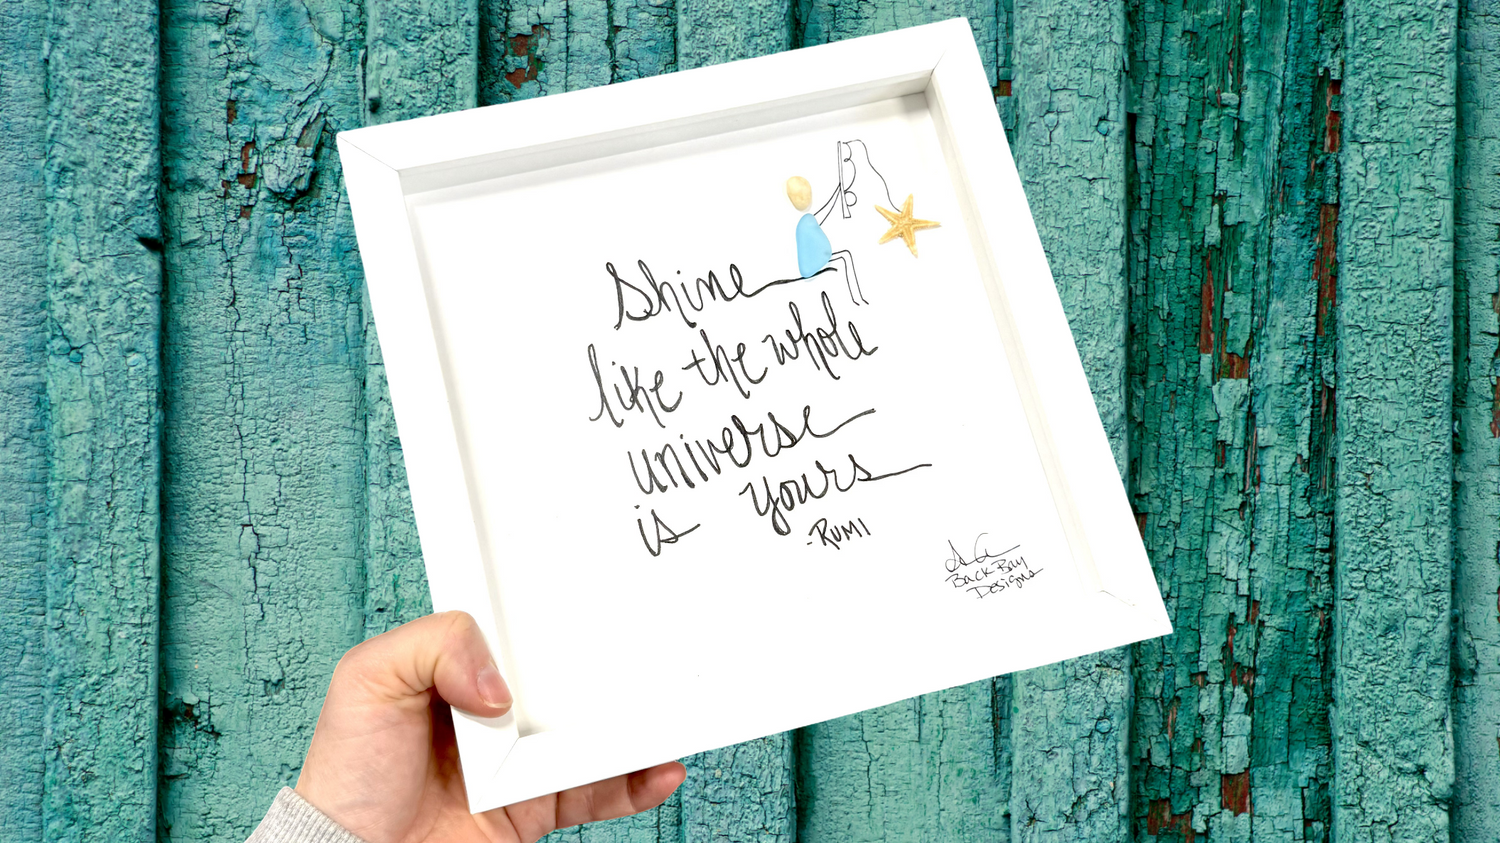 Shine
like the whole
universe
is yours
-RUMI
Back Bay
Designs